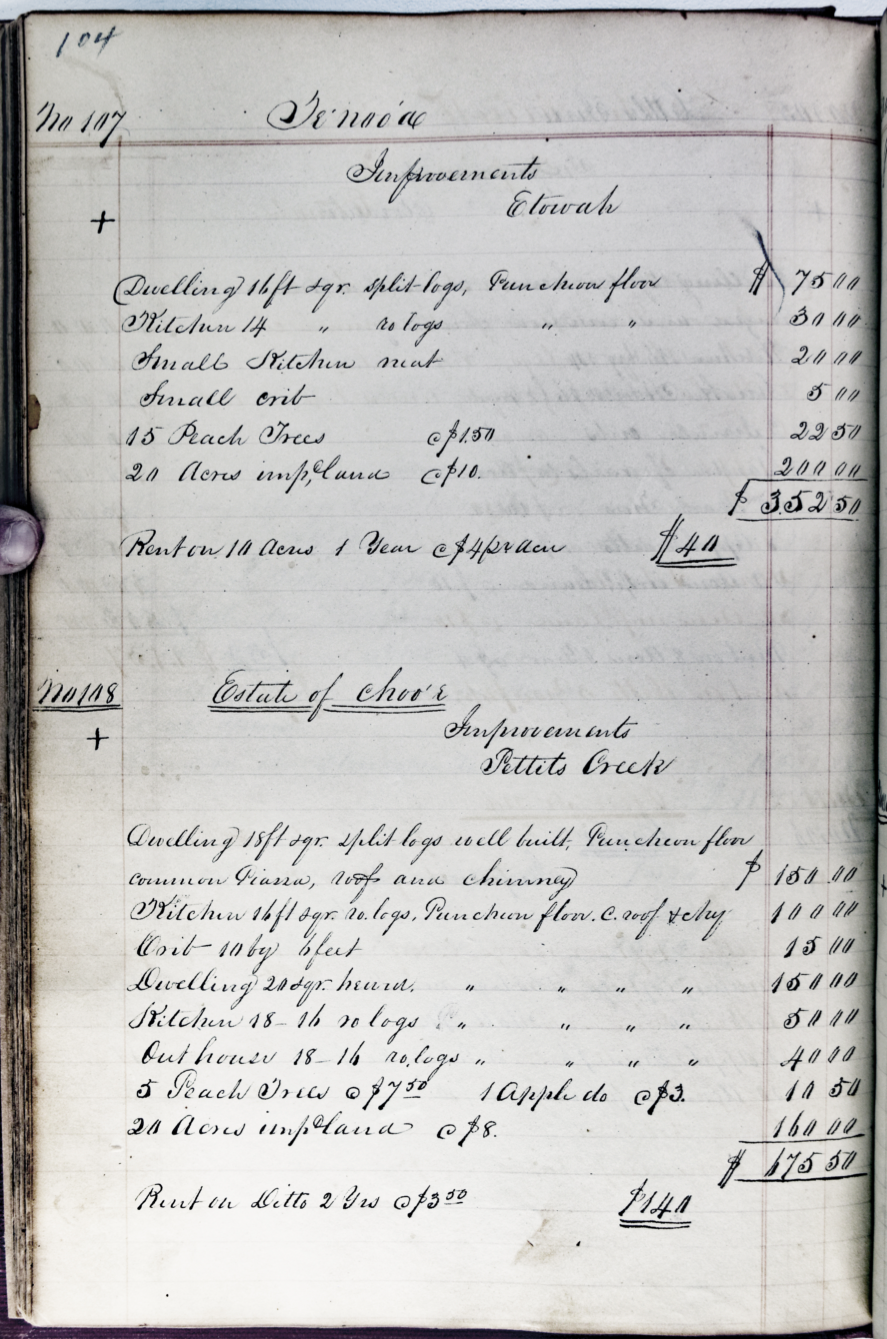 104
No 107 Te'noo'ae
Improvements
Etowah
+
Dwelling 16ft sqr. split logs, Puncheon floor $ 75 00
Kitchen 14 " ro logs " " 30 00
Small Kitchen neat 20 00
Small crib 5 00
15 Peach Trees c $1.50 22 50
20 Acres imp,d land c $10. 200 00
$ 352 50
Rent on 10 Acres 1 Year c $4 pr acre $40
No 108 Estate of Choo'e
+
Improvements
Pettits Creek
Dwelling 18ft sqr. split logs well built, Puncheon floor
common Piazza, roof and chimney $ 150 00
Kitchen 16ft sqr. ro. logs, Puncheon floor. C. roof & chy 100 00
Crib 10 by 6 feet 15 00
Dwelling 20 sqr. hewn. " " " " 150 00
Kitchen 18-16 ro logs " " " " 50 00
Out house 18-16 ro. logs " " " " 40 00
5 Peach Trees c $7 50 1 Apple do c $3. 10 50
20 Acres impd land c $8. 160 00
$ 675 50
Rent on Ditto 2 Yrs c $3 50 $140